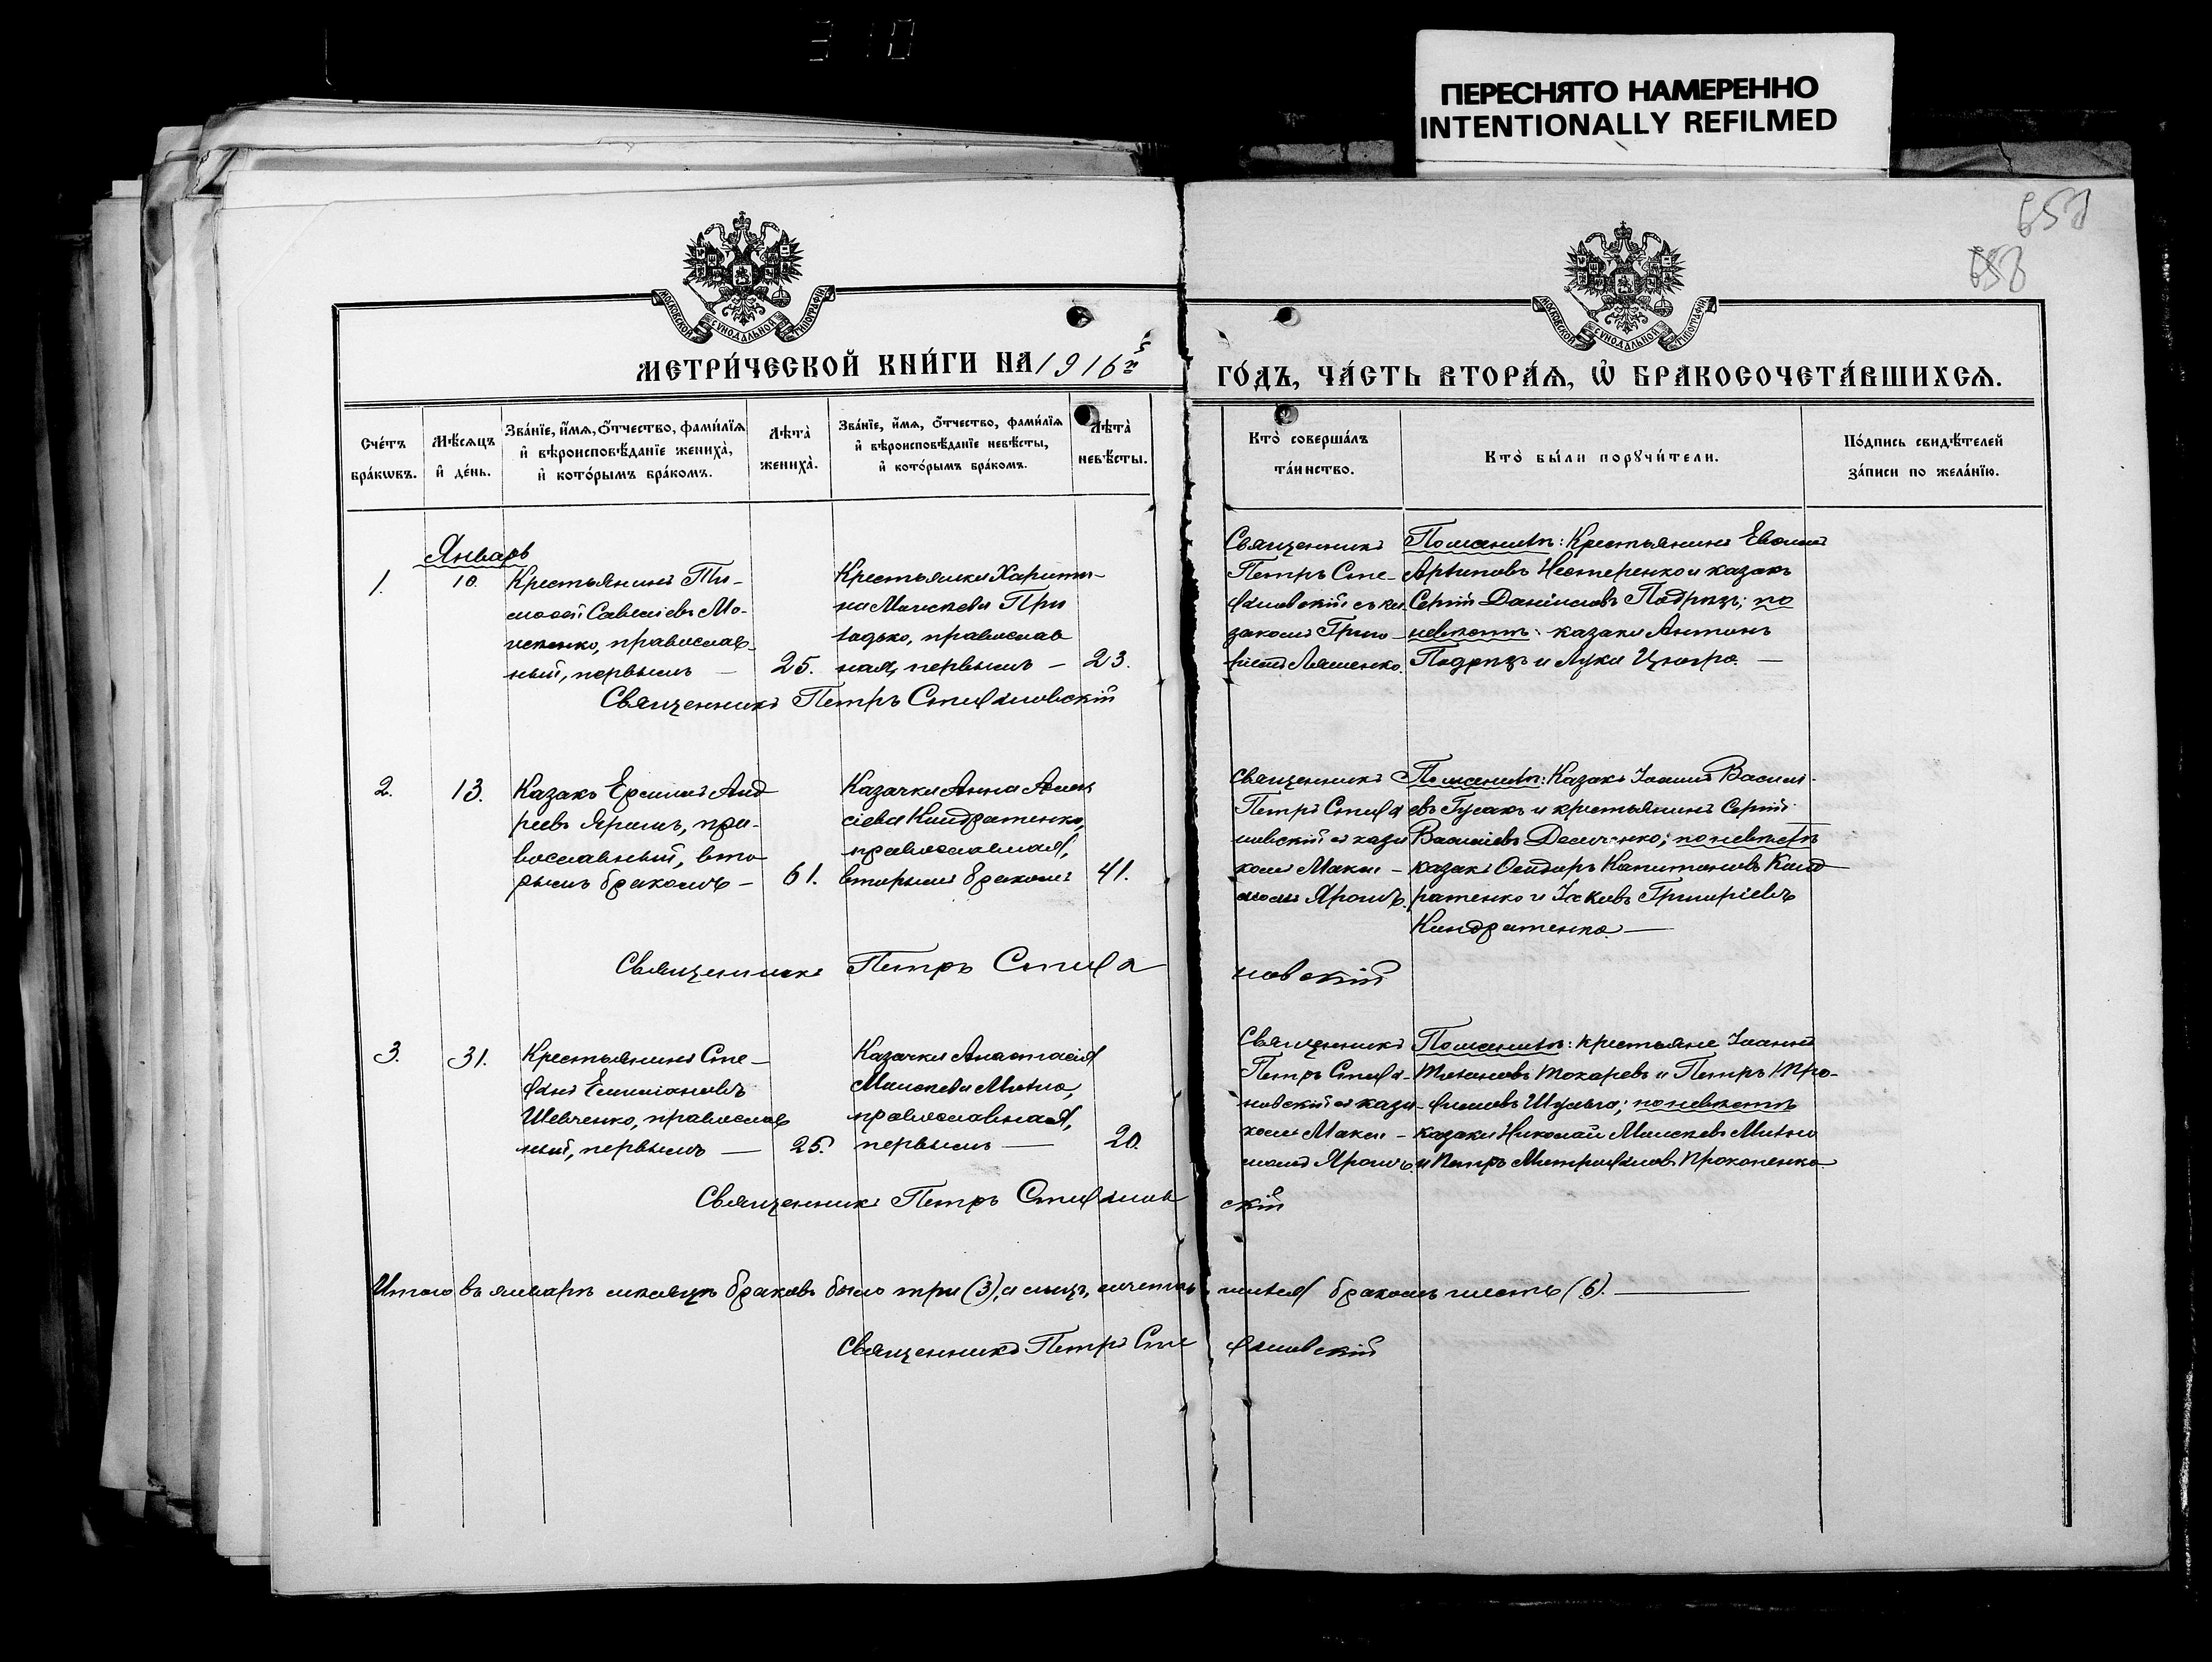 310
ПЕРЕСНЯТО НАМЕРЕННО
INTENTIONALLY REFILMED
МОСКОВСКОЙ СѴНОДАЛЬНОЙ ТИПОГРАФІИ
МОСКОВСКОЙ СѴНОДАЛЬНОЙ ТИПОГРАФІИ
МЕТРИ́ЧЕСКОЙ КНИ́ГИ НА 1916й
ГО́ДЪ, ЧА́СТЬ ВТОРА́Ѧ, Ѡ҆ БРАКОСОЧЕТА́ВШИХСѦ.
Сче́тъ бра́кѡвъ.
Мѣ́сѧцъ и҆ де́нь.
Зва́нїе, и҆́мѧ, ѻ҆́тчество, фами́лїѧ и҆ вѣроисповѣ́данїе жениха̀, и҆ кото́рымъ бра́комъ.
Лѣта̀ жениха̀.
Зва́нїе, и҆́мѧ, ѻ҆́тчество, фами́лїѧ и҆ вѣроисповѣ́данїе невѣ́сты, и҆ кото́рымъ бра́комъ.
Лѣта̀ невѣ́сты.
Кто̀ соверша́лъ та́инство.
Кто̀ бы́ли порꙋчи́тели.
По́дпись свидѣ́телей за́писи по жела́нїю.
Январь
1.
10.
Крестьянинъ Ти-
моѳей Савеліевъ Мо-
исеенко, православ-
ный, первымъ —
25.
Крестьянка Харити-
на Моисеева При
ладько, православ
ная, первымъ —
23.
Священникъ
Петръ Сте-
фановскій съ ка
закомъ Григо-
ріемъ Ляшенко.
По женихѣ: Крестьянинъ Евѳимій
Архиповъ Нестеренко и казакъ
Сергій Даніиловъ Подрѣзъ; по
невѣстѣ: казаки Антонъ
Подрѣзъ и Лука —
Священникъ Петръ Стефановскій
2.
13.
Казакъ Ермилъ Анд
реевъ Ярошъ, пра-
вославный, вто
рымъ бракомъ —
61.
Казачка Анна Алек
сіева Кондратенко,
православная,
вторымъ бракомъ
41.
Священникъ
Петръ Стефа
новскій съ каза
комъ Макси-
момъ Ярошъ.
По женихѣ: Казакъ Іоаннъ Василі-
евъ Гусакъ и крестьянинъ Сергій
Василіевъ Демченко; по невѣстѣ
казакъ Ѳеодоръ Капитоновъ Конд
ратенко и Іаковъ Григоріевъ
Кондратенко. —
Священникъ Петръ Стефа
новскій
3.
31.
Крестьянинъ Сте-
фанъ Емиліановъ
Шевченко, православ
ный, первымъ —
25.
Казачка Анастасія
Моисеева Михно,
православная,
первымъ —
20.
Священникъ
Петръ Стефа-
новскій съ каза-
комъ Макси-
момъ Ярошъ.
По женихѣ: крестьяне Іоаннъ
Токаревъ и Петръ Тро-
фимовъ Шульга; по невѣстѣ
казаки Николай Моисеевъ Михно
и Петръ Митрофановъ Прокопенко
Священникъ Петръ Стефанов
скій
Итого въ январѣ мѣсяцѣ браковъ было три (3), а лицъ, сочетав
шихся бракомъ шесть (6). —
Священникъ Петръ Сте
фановскій